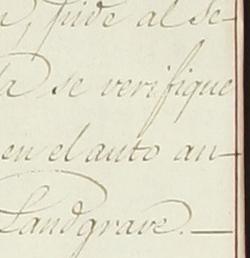 pide al Se-
se verifique
en el auto an-
Landgrave.—